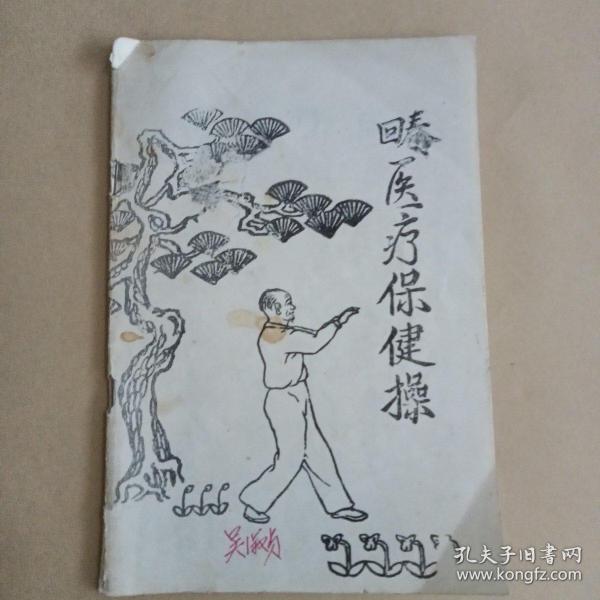 回春医疗保健操
吴淑贞
孔夫子旧书网
www.kongfz.com